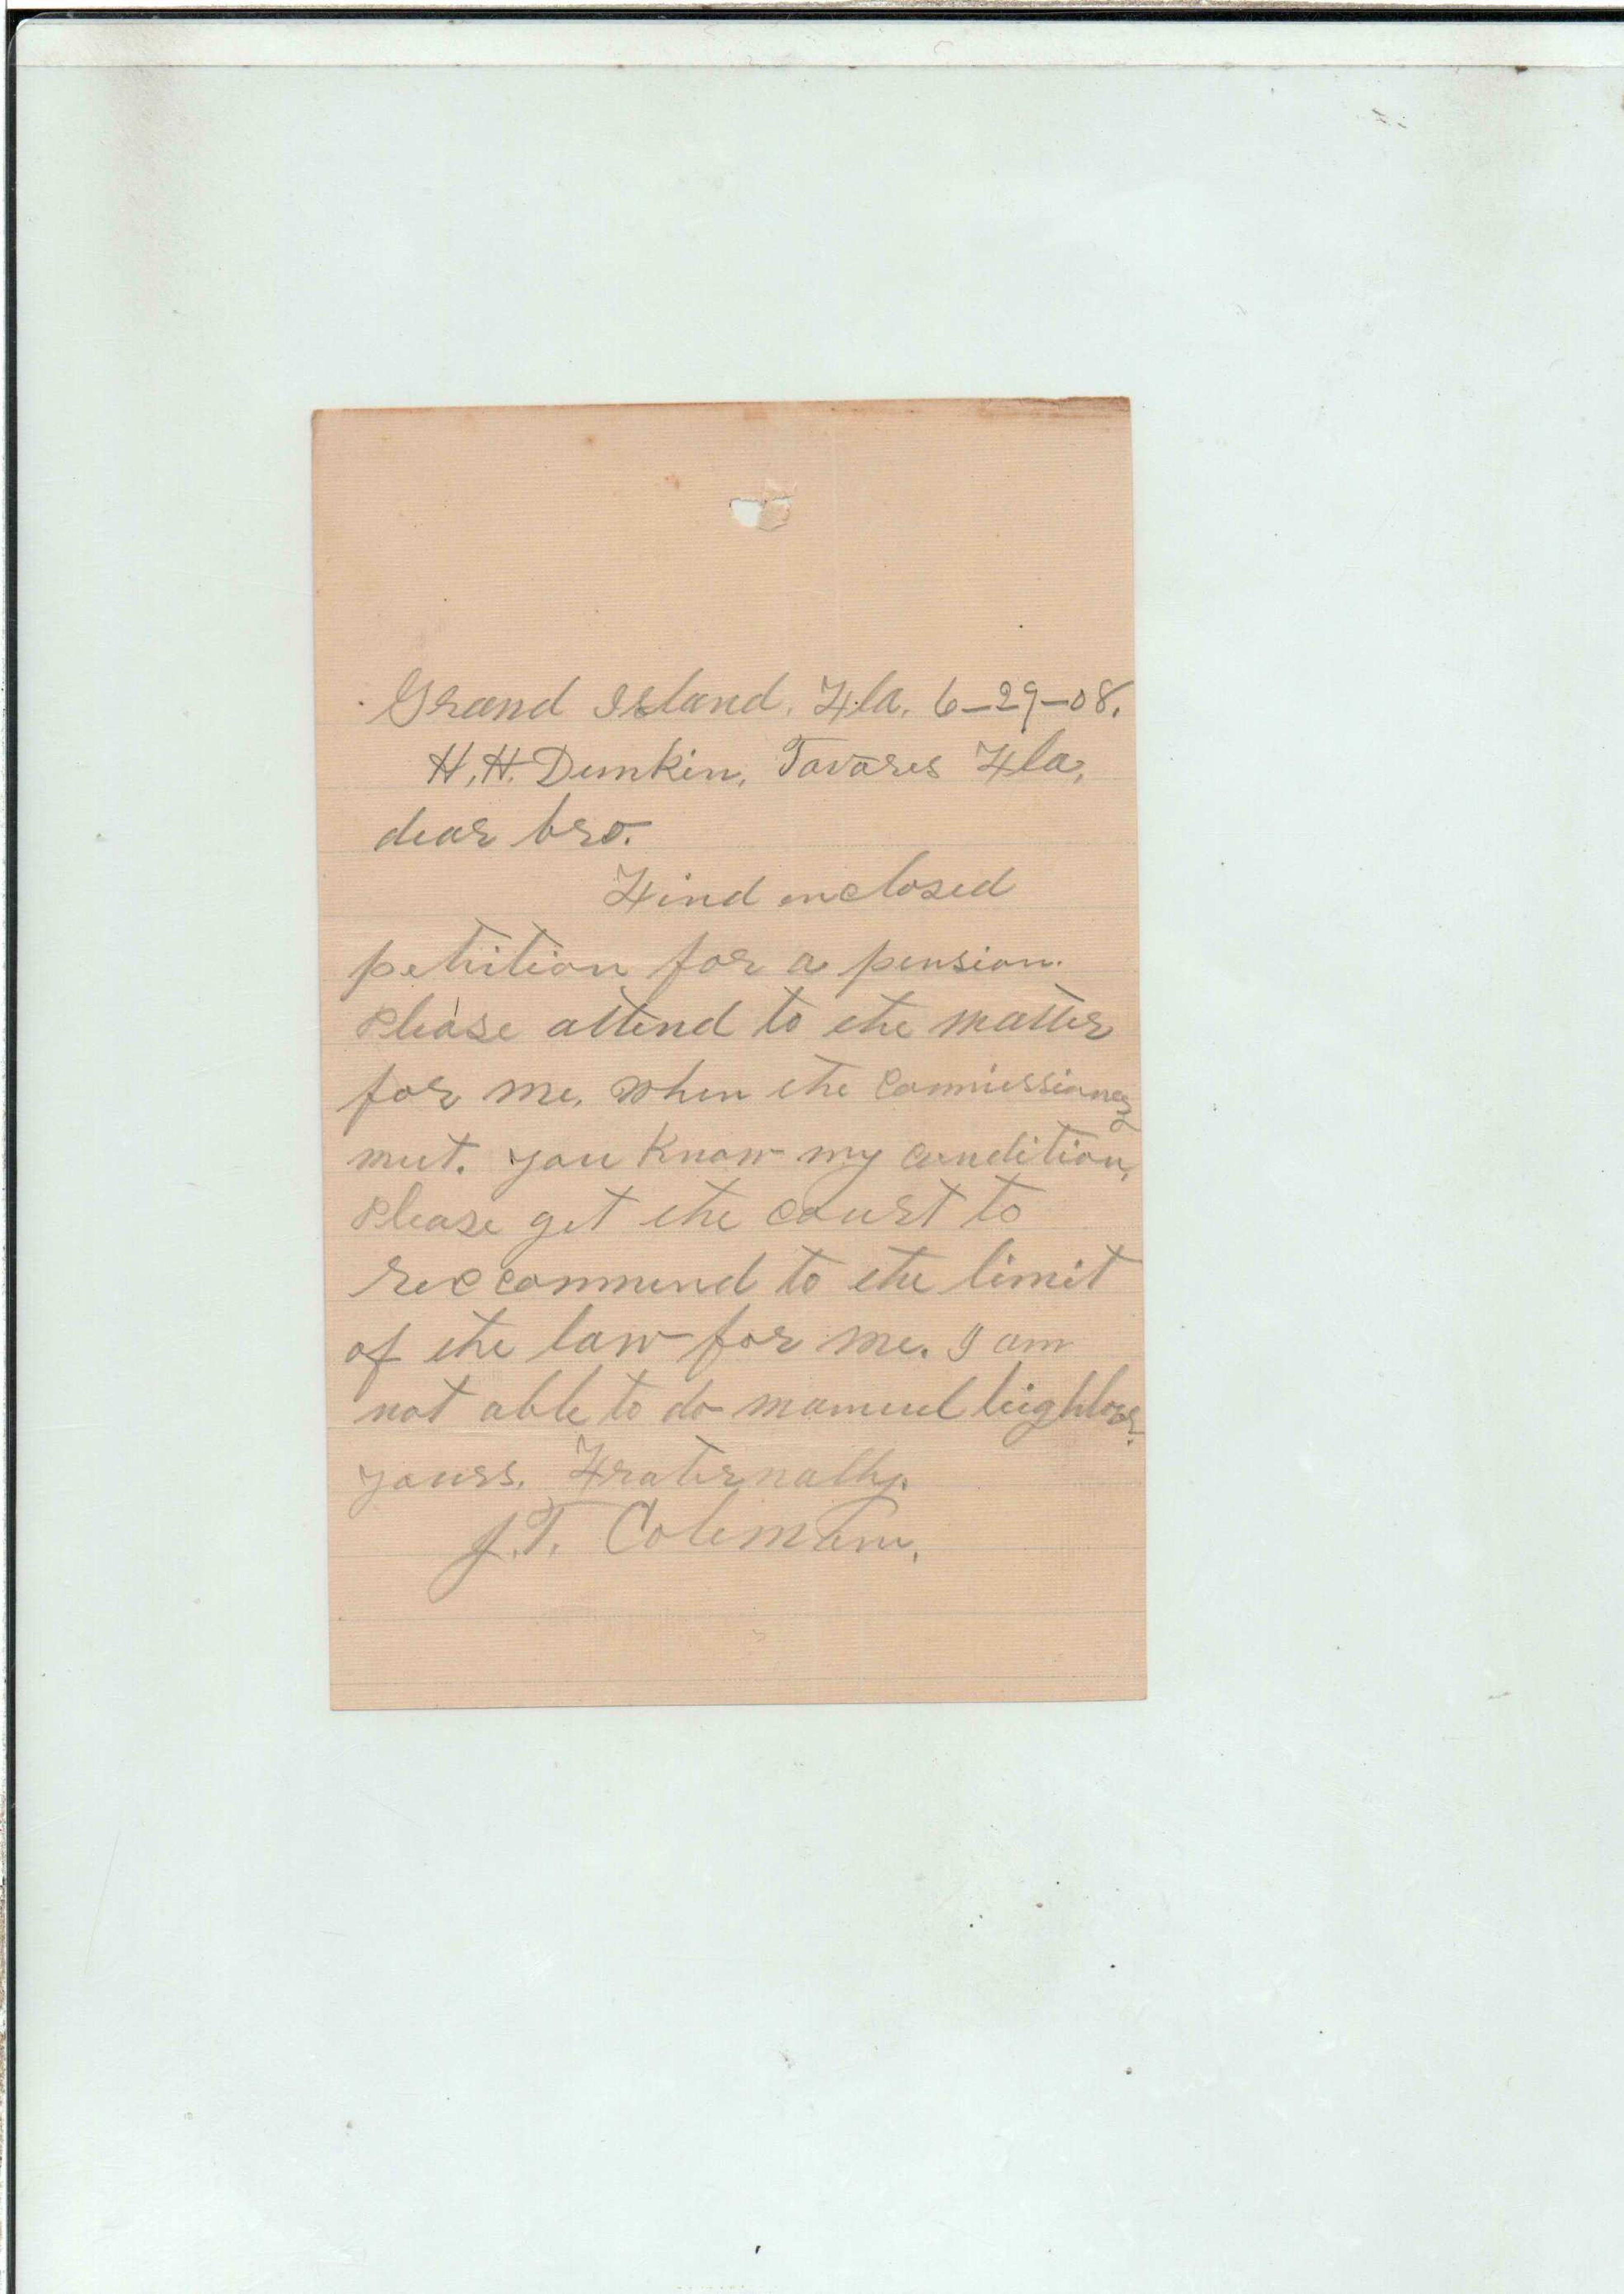 Grand Island, Fla. 6-29-08.
H. H. Dunkin, Tavares Fla,
dear bro.
Find enclosed
petition for a pension.
Please attend to the matter
for me, when the Commissioners
meet. you know my condition,
Please get the court to
reccommend to the limit
of the law for me. I am
not able to do manuel
yours. Fraternally.
J. T. Coleman.